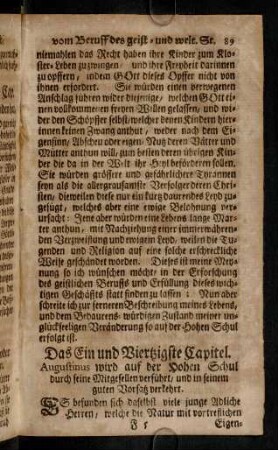 vom Beruff des geist- und welt. St. 89
niemahlen das Recht haben ihre Kinder zum Klo-
ster-Leben zu zwingen / und ihre Freyheit darinnen
zu opffern / indem GOtt dieses Opffer nicht von
ihnen erfordert. Sie würden einen verwegenen
Anschlag führen wider diejenige / welchen GOtt ei-
nen vollkommenen freyen Willen gelassen / und wi-
der den Schöpffer selbst / welcher denen Kindern hier-
innen keinen Zwang anthut / weder nach dem Ei-
gensinn / Abscheu oder eigen-Nutz deren Vätter und
Mütter anthun will / zum besten deren übrigen Kin-
der die da in der Welt ihr Heyl befördern sollen.
Sie würden grössere und gefährlichere Tyrannen
seyn als die allergrausamste Verfolger deren Chri-
sten / dieweilen diese nur ein kurtz daurendes Leyd zu-
gefügt / welches aber eine ewige Belohnung ver-
ursacht: Jene aber würden eine Lebens lange Mar-
ter anthun / mit Nachziehung einer immerwähren-
den Verzweiflung und ewigem Leyd / weilen die Tu-
genden und Religion auf eine solche erschreckliche
Weise geschändet worden. Dieses ist meine Mey-
nung so ich wünschen möchte in der Erforschung
des geistlichen Beruffs und Erfüllung dieses wich-
tigen Geschäffts statt finden zu lassen: Nun aber
schreite ich zur ferneren Beschreibung meines Lebens,
und dem Bedaurens-würdigen Zustand meiner un-
glückseeligen Veränderung so auf der Hohen Schul
erfolgt ist.
Das Ein und Viertzigste Capitel.
Augustinus wird auf der Hohen Schul
durch seine Mitgesellen verführt / und in seinem
guten Vorsatz verkehrt.
ES befunden sich daselbst viele junge Adliche
Herren / welche die Natur mit vortreflichen
F 5 Eigen-